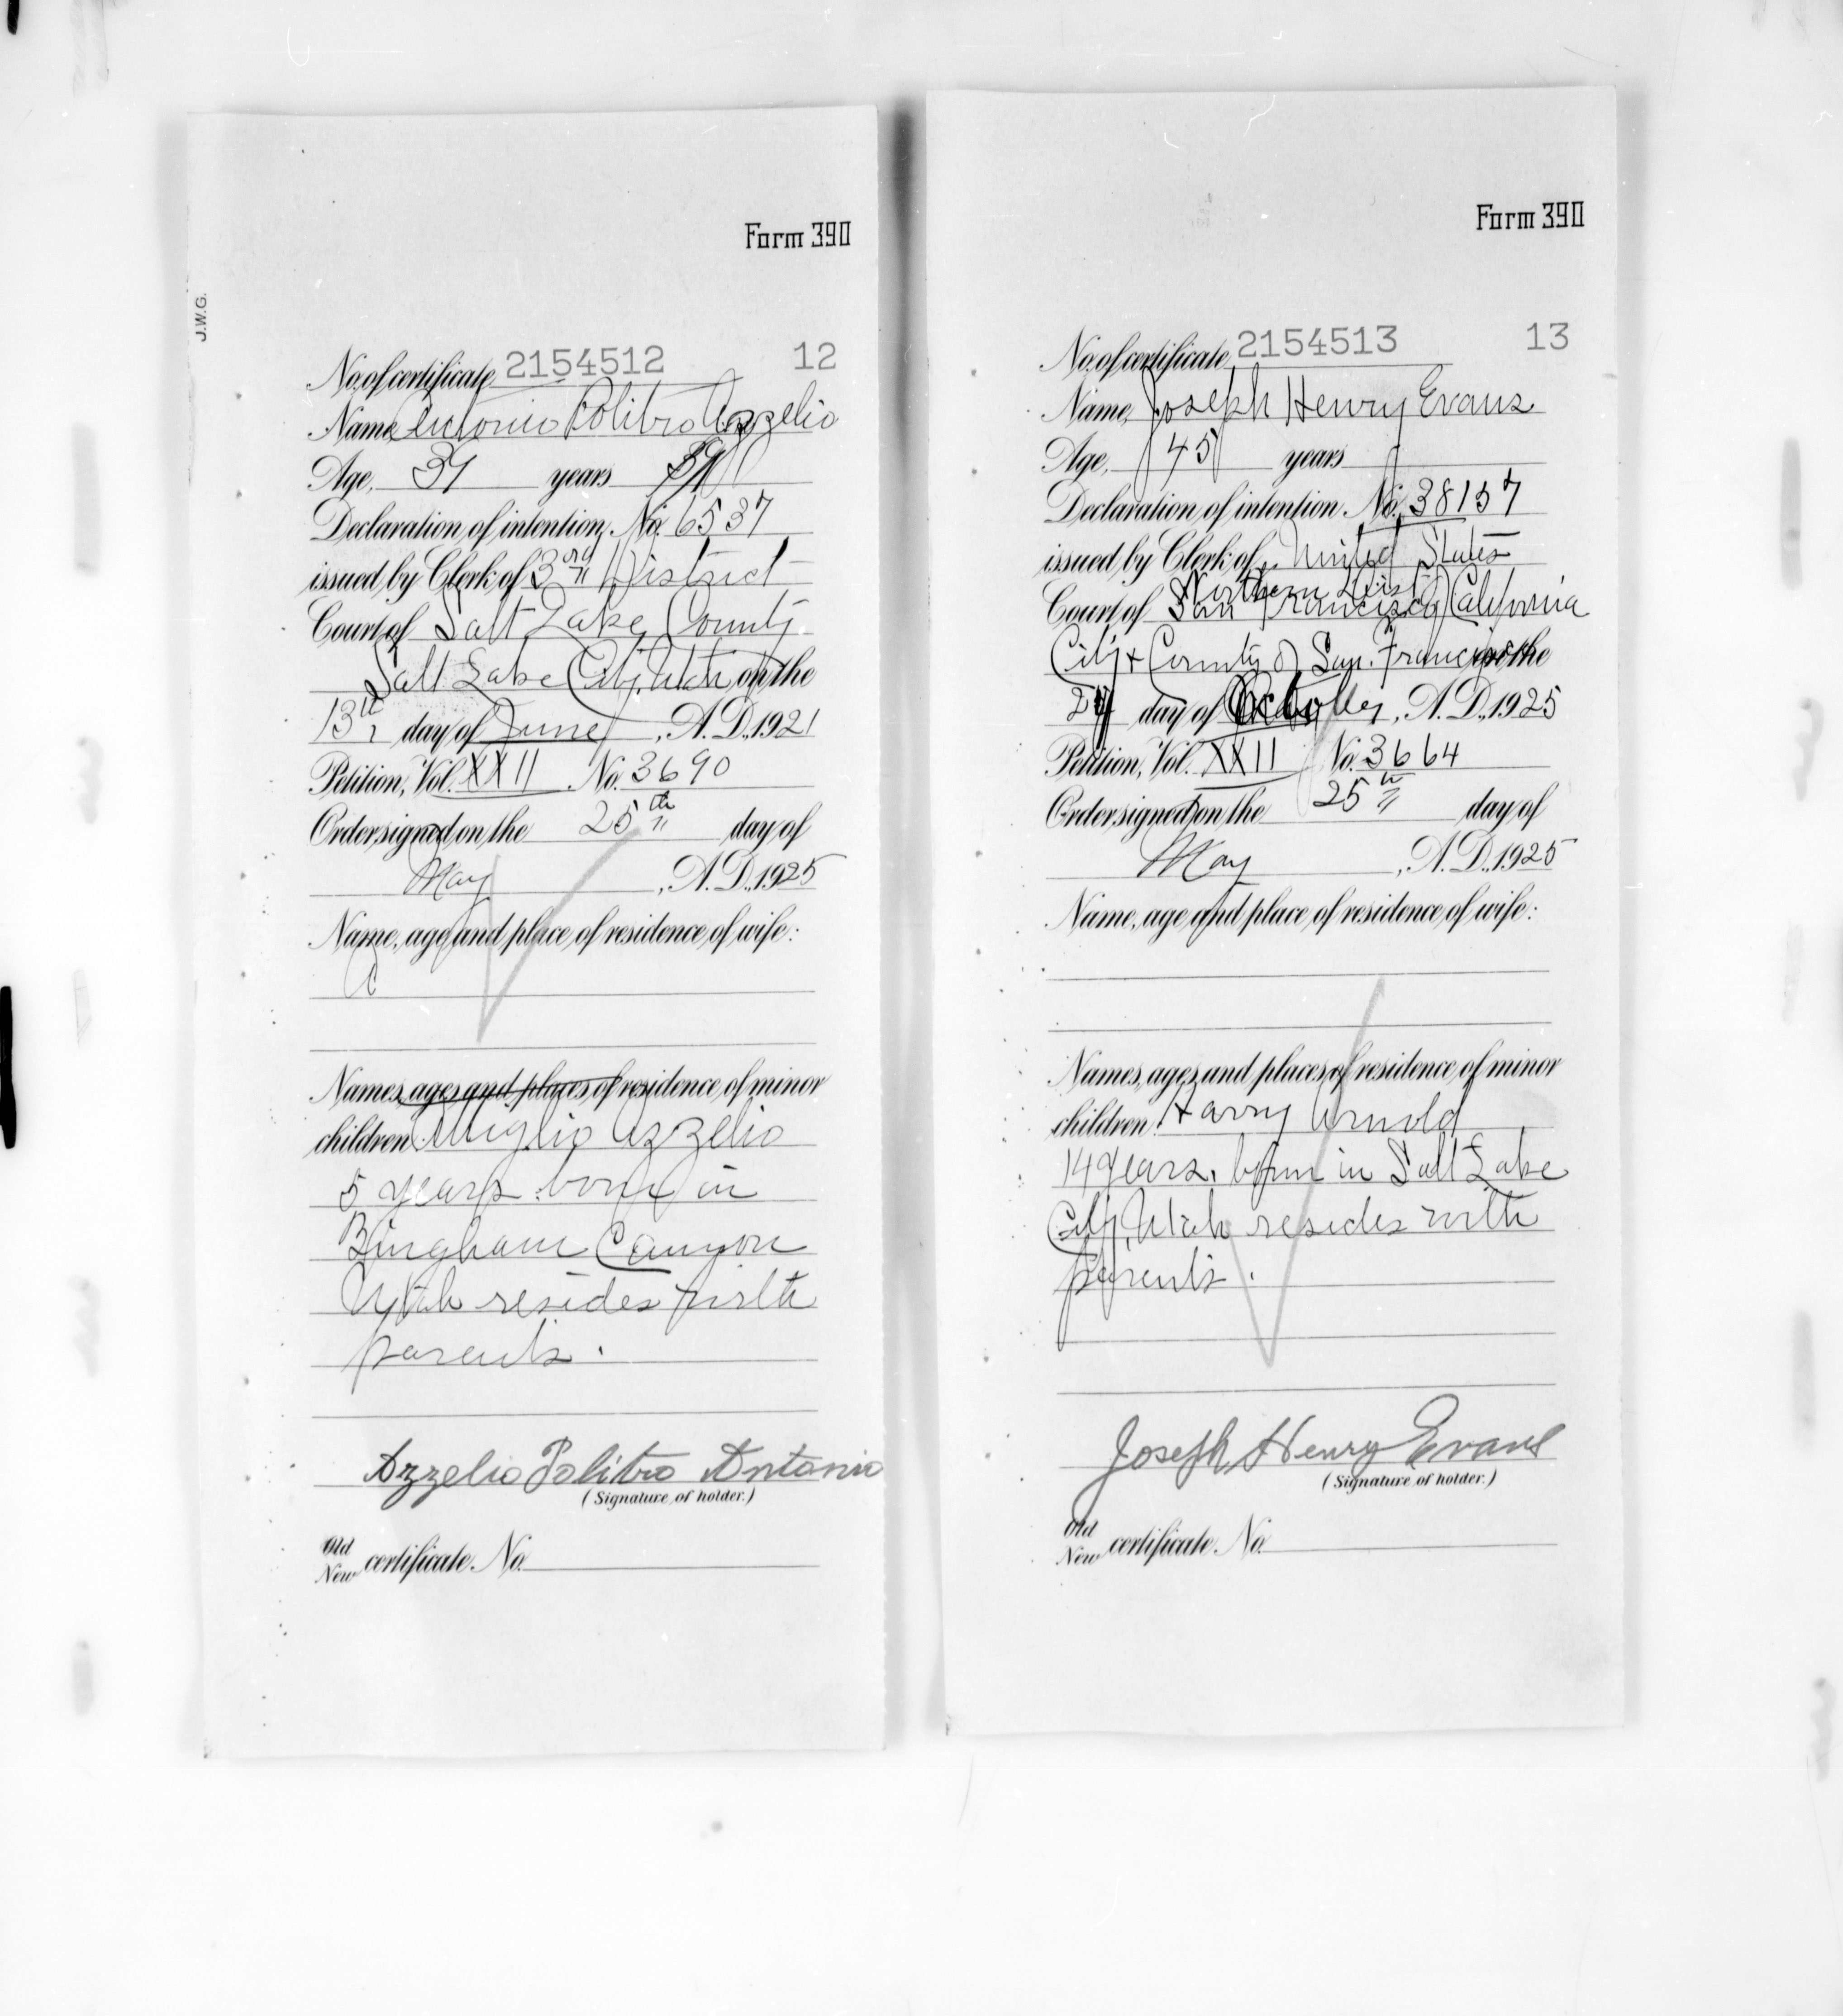 J.W.G.
Form 390
No. of certificate 2154512 12
Name Antonio Politro Azzelio
Age, 37 years
Declaration of intention, No. 6537
issued by Clerk of 3rd District
Court of Salt Lake County
Salt Lake City, Utah, on the
13th day of June, A.D., 1921
Petition, Vol. XXII No. 3690
Order signed on the 25th day of
May, A.D., 1925
Name, age and place of residence of wife:
Names, ages and places of residence of minor
children: Azzelio
5 years. born in
Bingham Canyon
Utah resides with
parents.
Azzelio Politro Antonio
(Signature of holder.)
Old
New certificate No.
Form 390
No. of certificate 2154513 13
Name, Joseph Henry Evans
Age, 45 years
Declaration of intention, No. 38157
issued by Clerk of United States
Northern Dist
Court of San Francisco, California
City & County of San. Francisco on the
day of, A.D., 1925
Petition, Vol. XXII No. 3664
Order signed on the 25th day of
May, A.D., 1925
Name, age and place of residence of wife:
Names, ages and places of residence of minor
children: Harry Arnold
14 years. born in Salt Lake
City, Utah resides with
parents.
Joseph Henry Evans
(Signature of holder.)
Old
New certificate No.